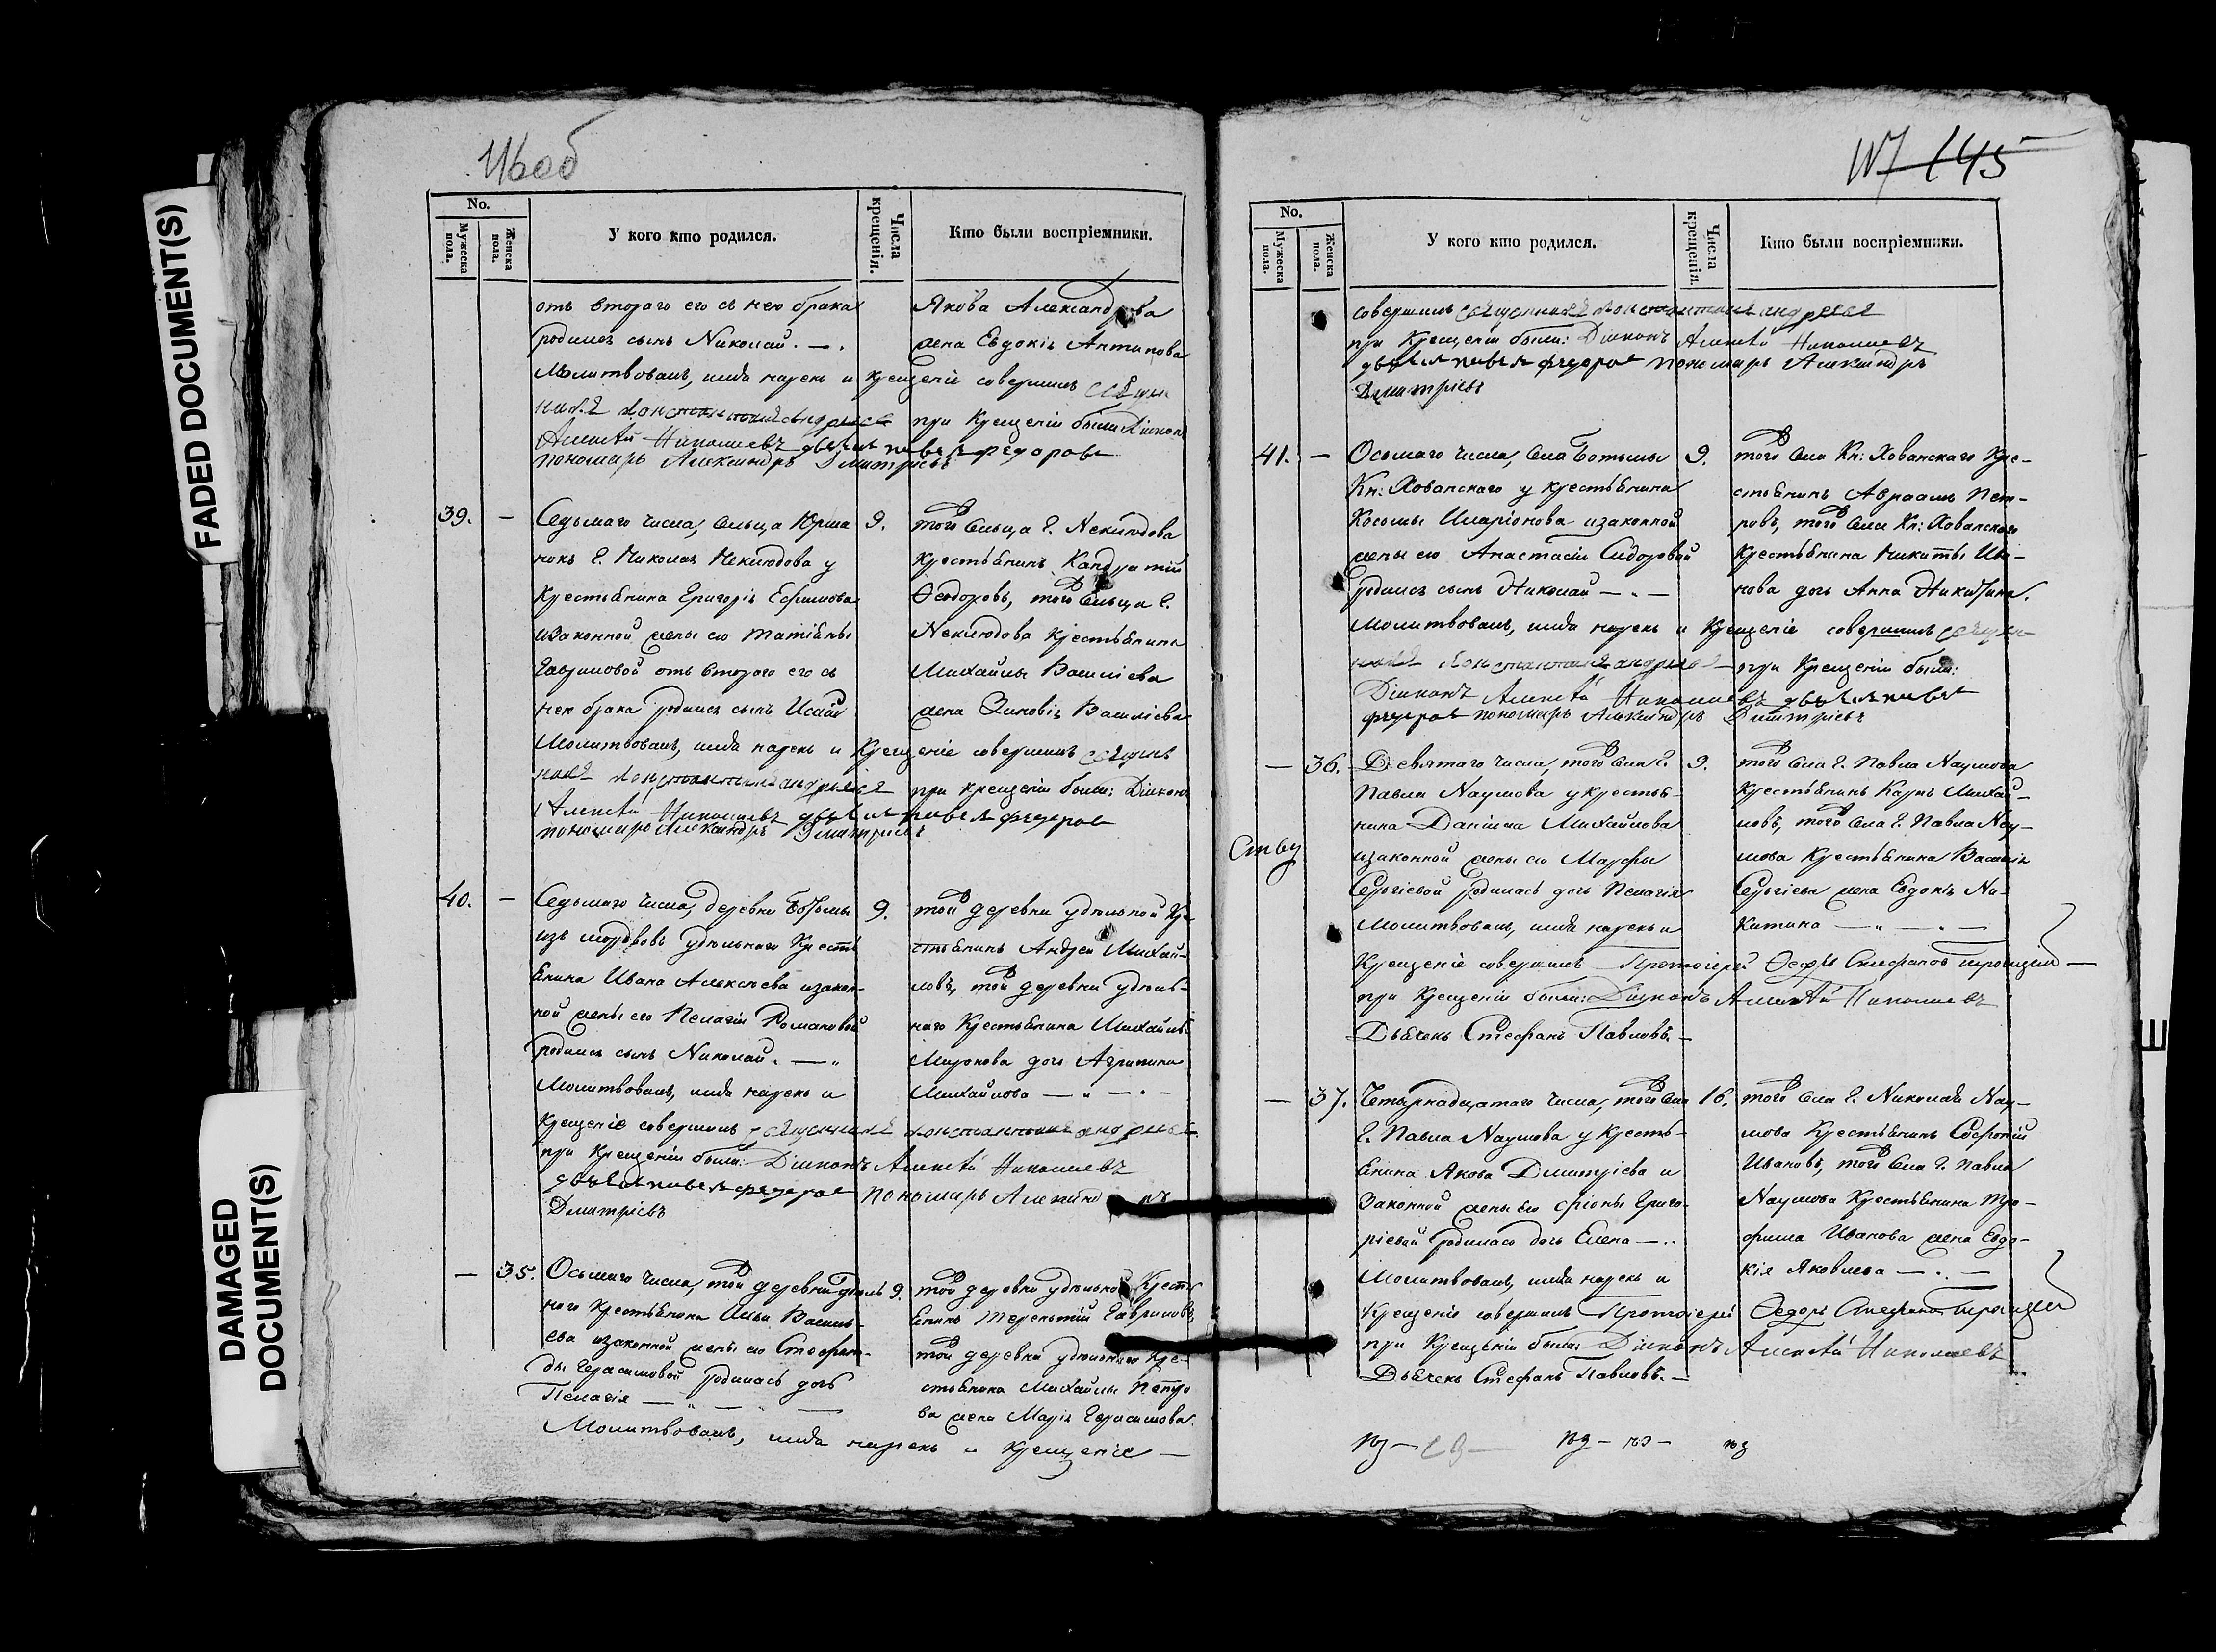 FADED DOCUMENT(S)
DAMAGED DOCUMENT(S)
146об
No.
Мужеска пола.
Женска пола.
У кого кто родился.
Числа крещенія.
Кто были воспріемники.
отъ втораго его съ нею брака
родился сынъ Николай. — .
Молитвовалъ, имя нарекъ и крещеніе совершилъ Священ
никъ Константинъ Андреевъ
Алексѣй Николаевъ
пономарь Александръ Дмитріевъ
Якова Александрова
жена Евдокія Антипова
при Крещеніи были Діаконъ
39. —
Седьмаго числа, сельца Юрма
нокъ Г. Николая Неклюдова у
Крестьянина Григорія Ефимова
изаконной жены его Татіяны
Гавриловой отъ втораго его съ
нею брака родился сынъ Исаiй
Молитвовалъ, имя нарекъ и Крещеніе совершилъ Священ
никъ Константинъ Андреевъ
Алексѣй Николаевъ
пономарь Александръ Дмитріевъ
9.
того сельца Г. Неклюдова
крестьянинъ Кандратій
Ѳеодоровъ, того сельца Г.
Неклюдова крестьянина
Михайлы Василіева
жена Зиновія Василіева
при крещеніи были: Діаконъ
40. —
Седьмаго числа, деревни Ботьмы
изъ мордвовъ удѣльнаго Кресть
янина Ивана Алексѣева изакон-
ной жены его Пелагіи Романовой
родился сынъ Николай. — „
Молитвовалъ, имя нарекъ и
Крещеніе совершилъ Священникъ Константинъ Андреевъ
при Крещеніи были: Діаконъ Алексѣй Николаевъ
пономарь Александръ
Дмитріевъ
9.
той деревни удѣльной Кре-
стьянинъ Андрей Михай-
ловъ, той деревни удѣль-
наго Крестьянина Михайлы
Миронова дочь Агрипина
Михайлова — „ — . —
— 35.
Осьмаго числа, той деревни удѣль
наго крестьянина Ильи Василь-
ева изаконной жены его Стефани-
ды Герасимовой родилась дочь
Пелагія — „ — „ —
Молитвовалъ, имя нарекъ и крещеніе —
9.
той деревни удѣльной Кресть
янинъ Терентій Гавриловъ
той деревни удѣльнаго Кре-
стьянина Михайлы Петро
ва жена Марія Герасимова.
147 145
No.
Мужеска пола.
Женска пола.
У кого кто родился.
Числа крещенія.
Кто были воспріемники.
совершилъ Священникъ Константинъ Андреевъ
при Крещеніи были: Діаконъ Алексѣй Николаевъ
пономарь Александръ
Дмитріевъ
41. —
Осьмаго числа, села Ботьмы
Кн: Хованскаго у крестьянина
Косьмы Иларіонова изаконной
жены его Анастасіи Сидоровой
родился сынъ Николай — „ —
Молитвовалъ, имя нарекъ и Крещеніе совершилъ Священ-
никъ Константинъ Андреевъ — при Крещеніи были:
Діаконъ Алексѣй Николаевъ
пономарь Александръ Дмитріевъ
9.
того села Кн: Хованскаго Кре-
стьянинъ Авраамъ Пет-
ровъ, того села Кн: Хованскаго
Крестьянина Никиты Ива-
нова дочь Анна Никитина.
— 36.
Девятаго числа, того села Г.
Павла Наумова у крестья-
нина Даніила Михайлова
изаконной жены его Марфы
Сергіевой родилась дочь Пелагія
Молитвовалъ, имя нарекъ и
Крещеніе совершилъ Протоіерей
при Крещеніи были: Діаконъ Алексѣй Николаевъ
Дьячекъ Стефанъ Павловъ. —
9.
того села Г. Павла Наумова
Крестьянинъ Карпъ Михай-
ловъ, того села Г. Павла Нау-
мова Крестьянина Василія
Сергіева жена Евдокія Ни-
китина — „ — . —
— 37.
Четырнадцатаго числа, того села
Г. Павла Наумова у кресть-
янина Якова Дмитріева и
законной жены его Ѳіоны Григо-
ріевой родилась дочь Елена — . .
Молитвовалъ, имя нарекъ и
Крещеніе совершилъ Протоіерей Ѳедоръ Стефановъ Троицкій
при Крещеніи были: Діаконъ Алексѣй Николаевъ
Дьячекъ Стефанъ Павловъ. —
16.
того села Г. Николая Нау-
мова Крестьянинъ Софроній
Ивановъ, того села Г. Павла
Наумова Крестьянина Тро-
фима Иванова жена Евдо-
кія Яковлева — . —